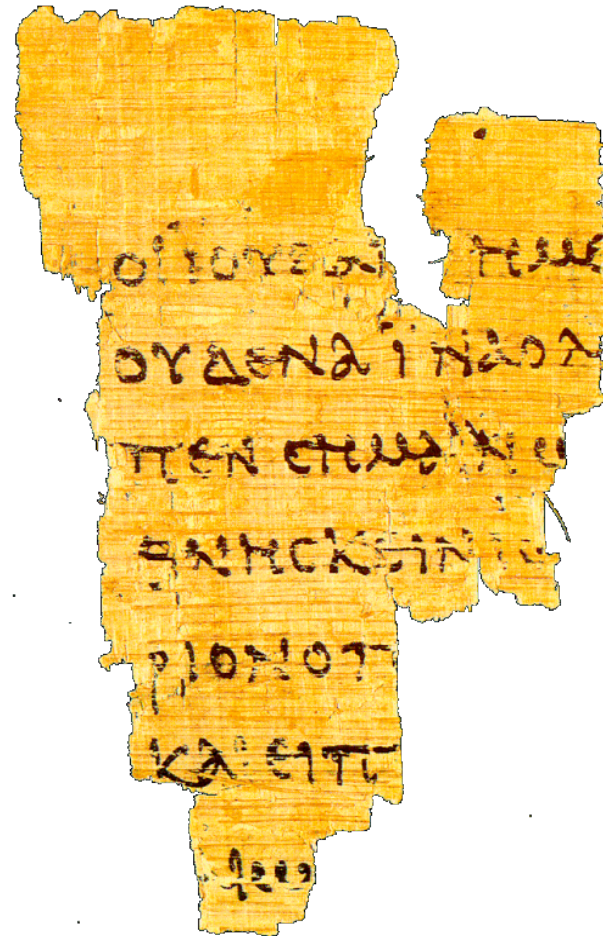 ΟΙ ΙΟΥΔΑΙ ΗΜΕ
ΟΥΔΕΝΑ ΪΝΑ Ο Λ
ΠΕΝ CΗΜΑΙΝω
ΘΝΗCΚΕΙΝ ΙC
ΡΙΟΝ Ο Π
ΚΑΙ ΕΙΠ